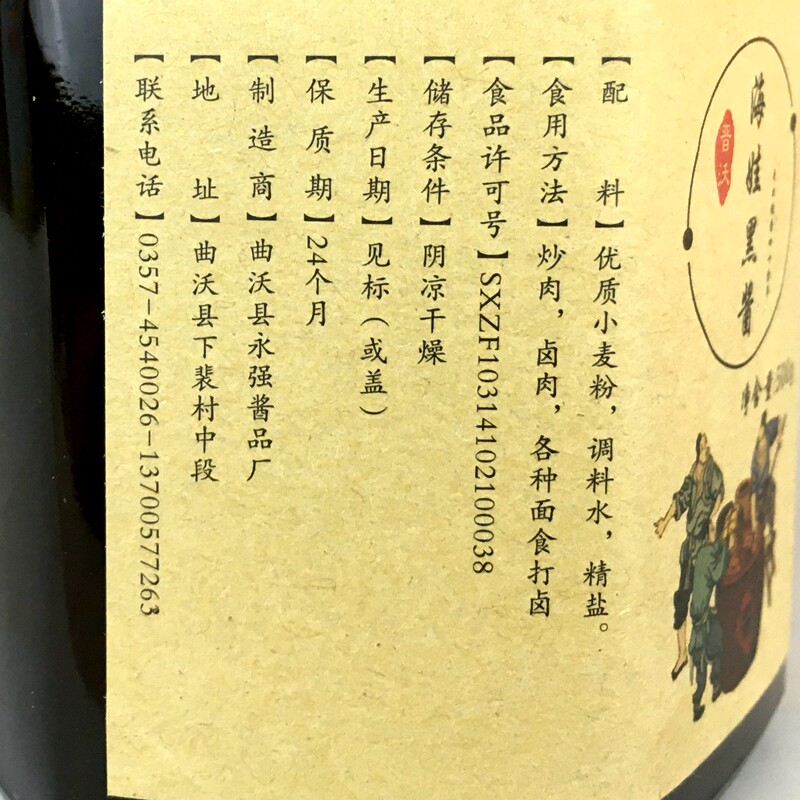 海娃黑酱
晋沃
净含量:
【配料】优质小麦粉，调料水，精盐。
【食用方法】炒肉，卤肉，各种面食打卤
【食品许可号】SXZF10314102100038
【储存条件】阴凉干燥
【生产日期】见标（或盖）
【保质期】24个月
【制造商】曲沃县永强酱品厂
【地址】曲沃县下裴村中段
【联系电话】0357-4540026-13700577263